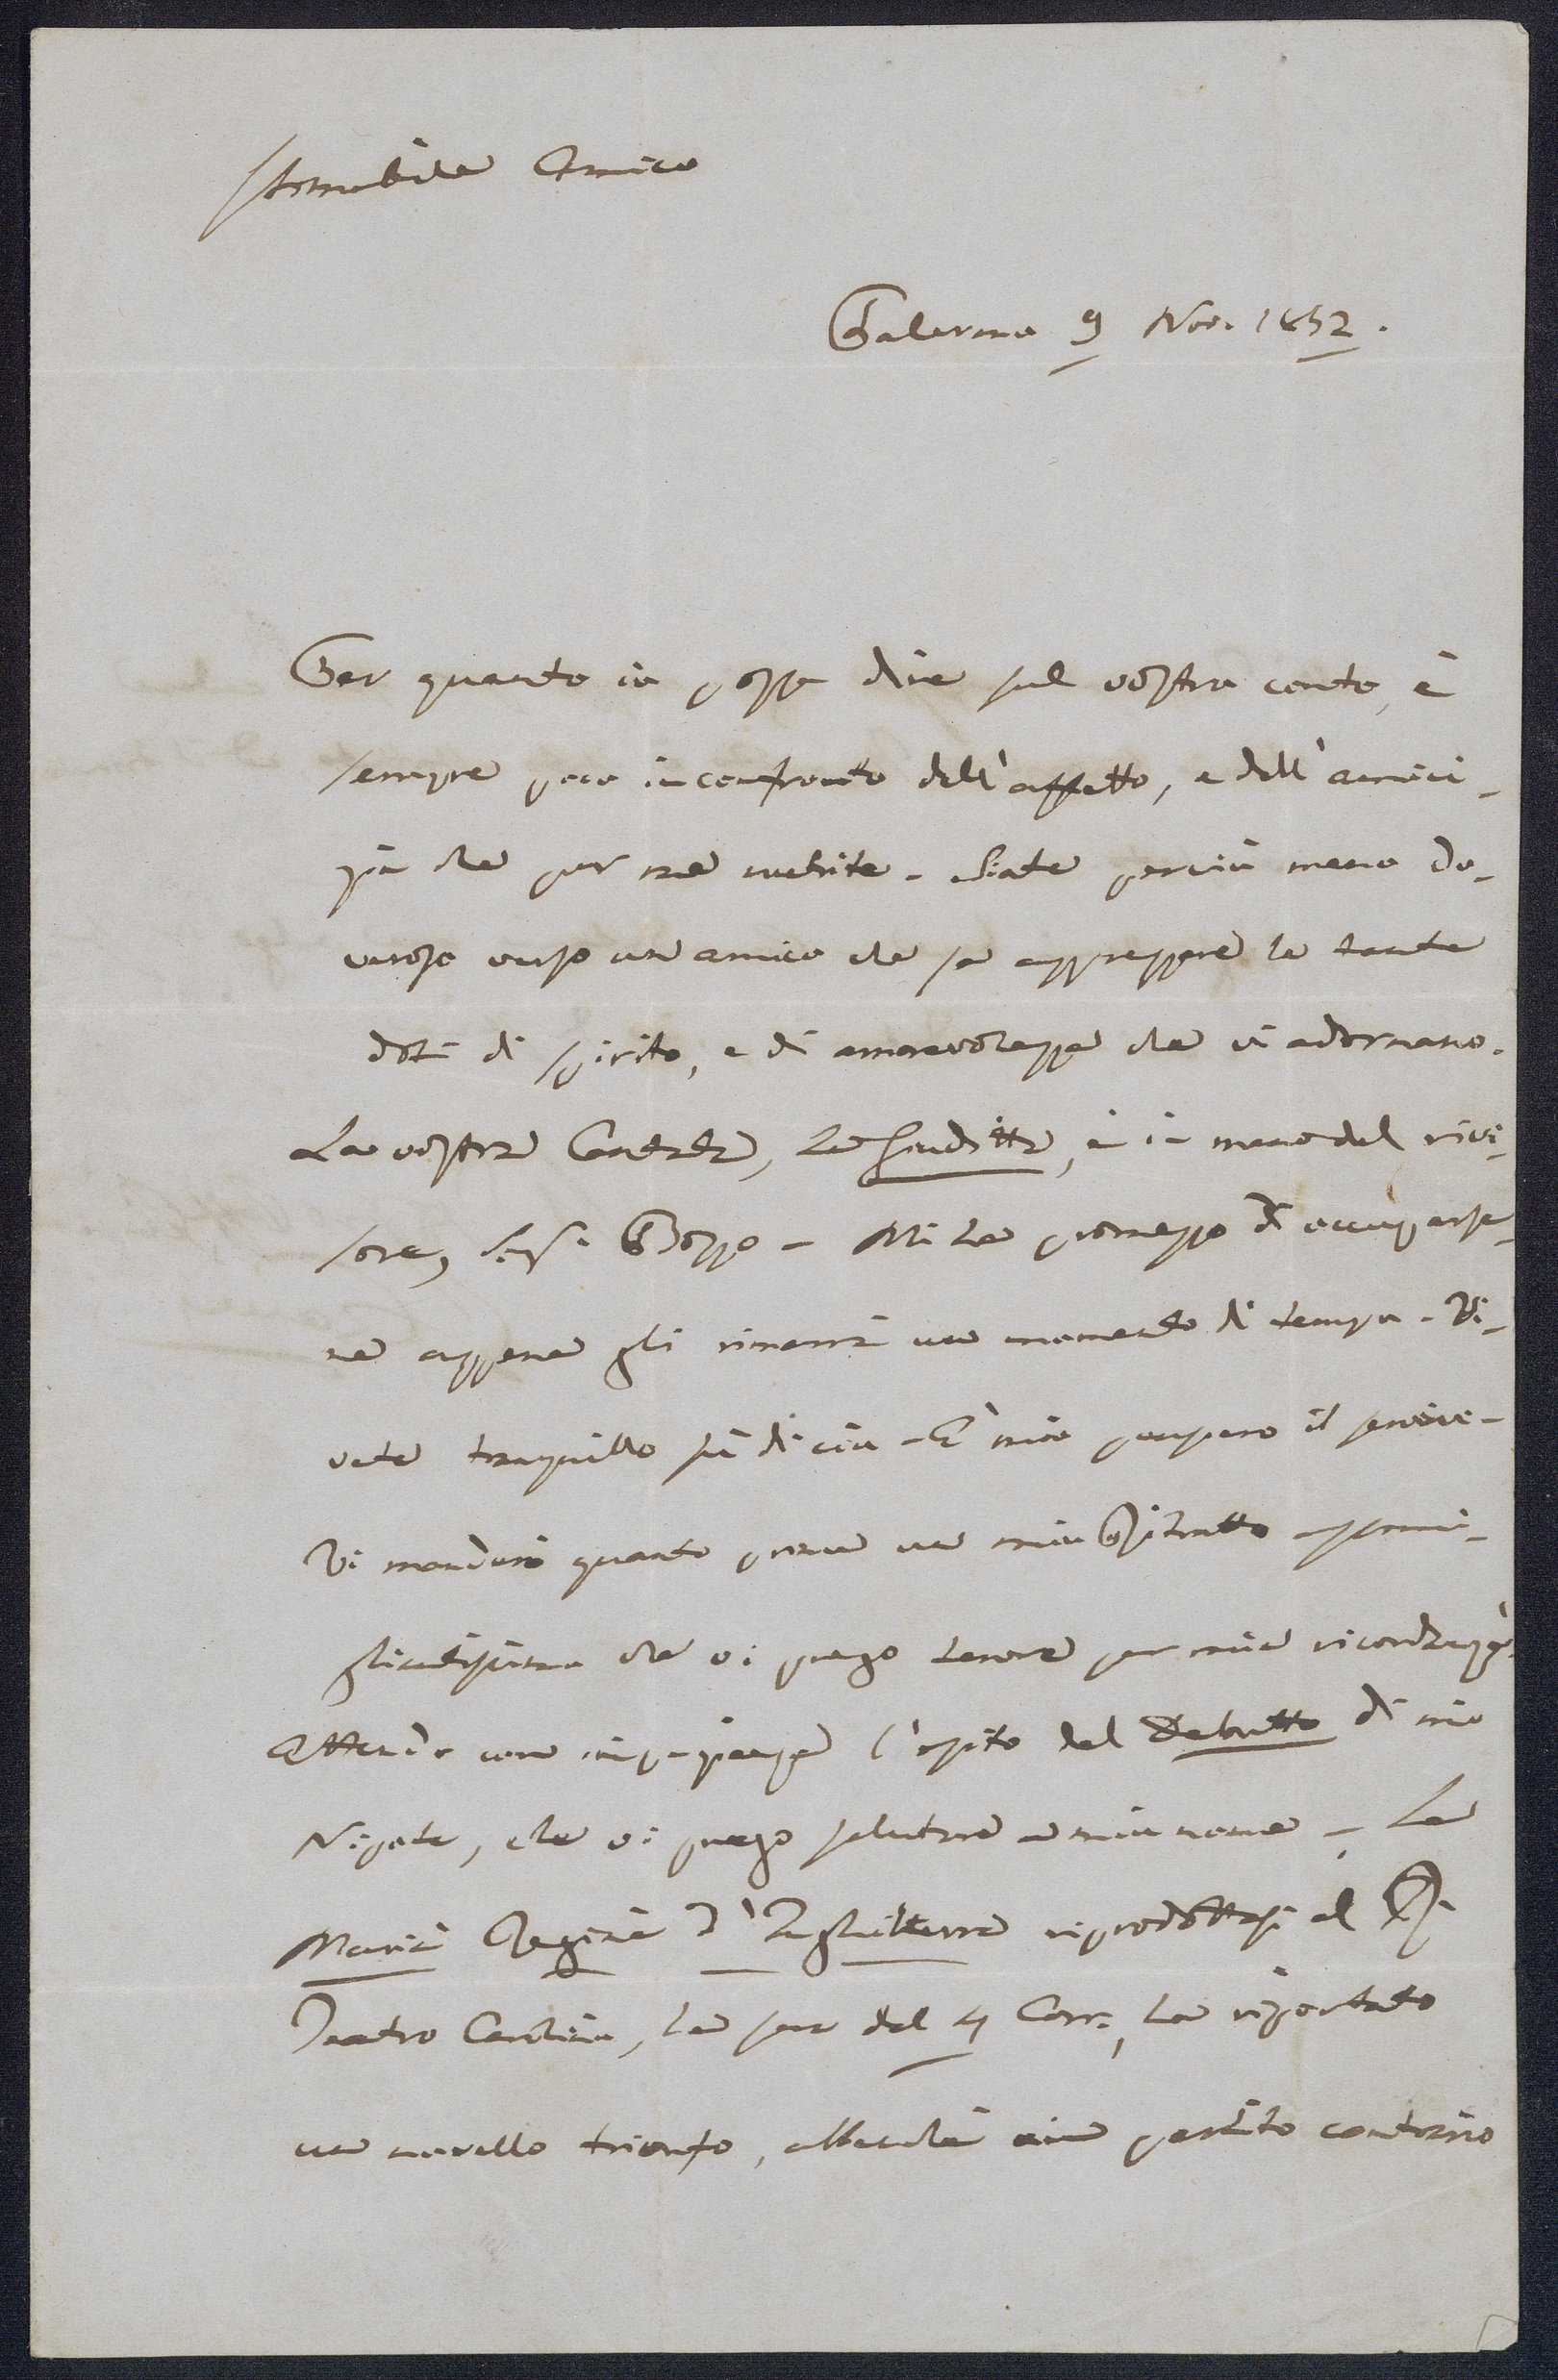 Stimabile Amico
Palermo 9 Nov. 1852.
Per quanto io possa dire sul vostro conto, è
sempre poco in confronto dell'affetto, e dell'amici-
zia che per me nutrite. Siate perciò meno do-
veroso verso un amico che sa apprezzare le tante
doti di spirito, e di amorevolezza che vi adornano.
La vostra Cantata, La Giuditta, è in mano del rivi-
sore, Sig.r Bozzo - Mi ha promesso di occuparse-
ne appena gli rimarrà un momento di tempo. Vi-
vete tranquillo su di ciò - È mio pensiero il servirvi -
Vi manderò quanto prima un mio Ritratto assomi-
gliantissimo che vi prego tenere per mia ricordanza.
Attendo con impazienza l'esito del Debutto di mio
Nipote, che vi prego salutare a mio nome - La
Maria Regina d'Inghilterra riprodottasi al R.
Teatro Carolino, la sera del 4 Corr., ha riportato
un novello trionfo, abbenchè un partito contrario